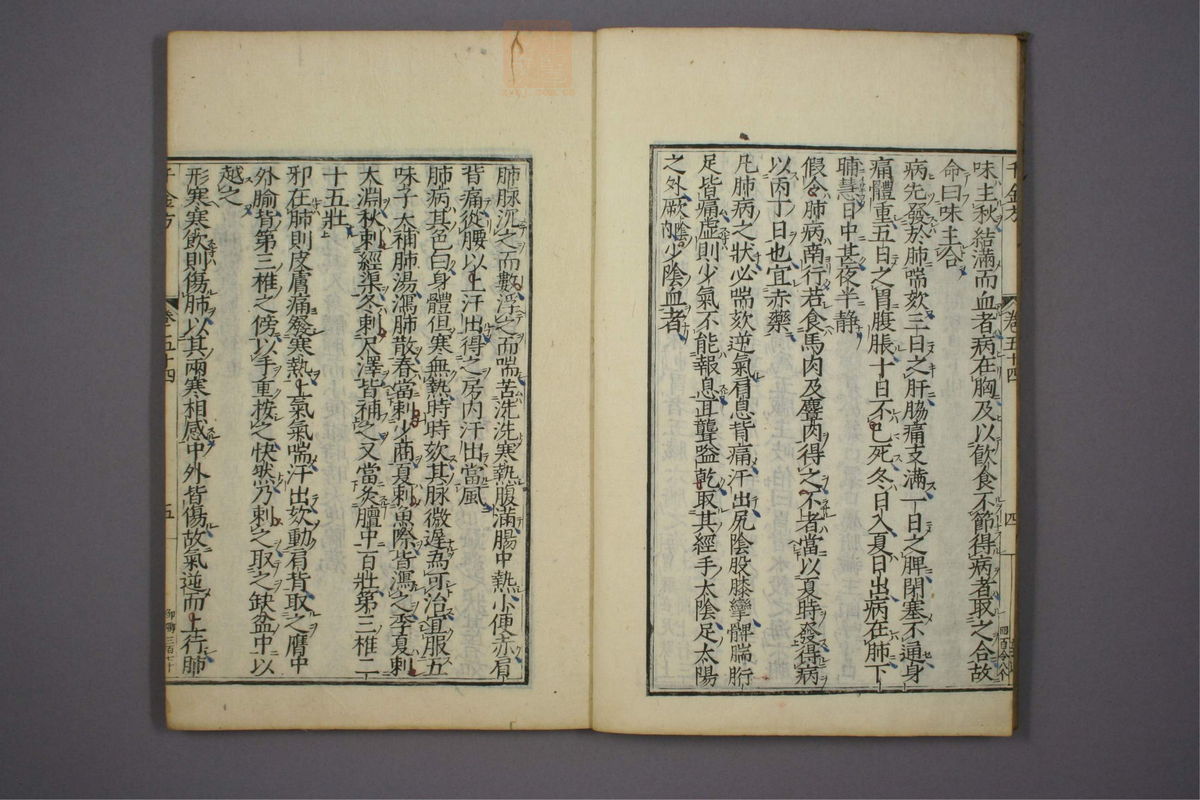 味主秋結滿而血者病在胸及以飲食不節得病者取之合故
命曰味主合
病先發於肺喘欬三日之肝脇痛支滿一日之脾閉塞不通身
痛體重五日之胃腹脹十日不已死冬日入夏日出病在肺下
晡慧日中甚夜半靜
假令肺病南行若食馬肉及麞肉得之不者當以夏時發得病
以丙丁日也宜赤藥
凡肺病之狀必喘欬逆氣肩息背痛汗出尻陰股膝攣髀腨胻
足皆痛虛則少氣不能報息耳聾嗌乾取其經手太陰足太陽
之外厥陰內少陰血者
千金方
卷五十四
四
肺脉沉之而數浮之而喘苦洗洗寒熱腹滿腸中熱小便赤肩
背痛從腰以上汗出得之房內汗出當風
肺病其色白身體但寒無熱時時欬其脉微遲為可治宜服五
味子大補肺湯瀉肺散春當刺少商夏刺魚際皆瀉之季夏刺
大淵秋刺經渠冬刺尺澤皆補之又當灸膻中百壯第三椎二
十五壯
邪在肺則皮膚痛發寒熱上氣氣喘汗出欬動肩背取之膺中
外腧背第三椎之傍以手重按之快然乃刺之取之缺盆中以
越之
形寒寒飲則傷肺以其兩寒相感中外皆傷故氣逆而上行肺
千金方
卷五十四
五